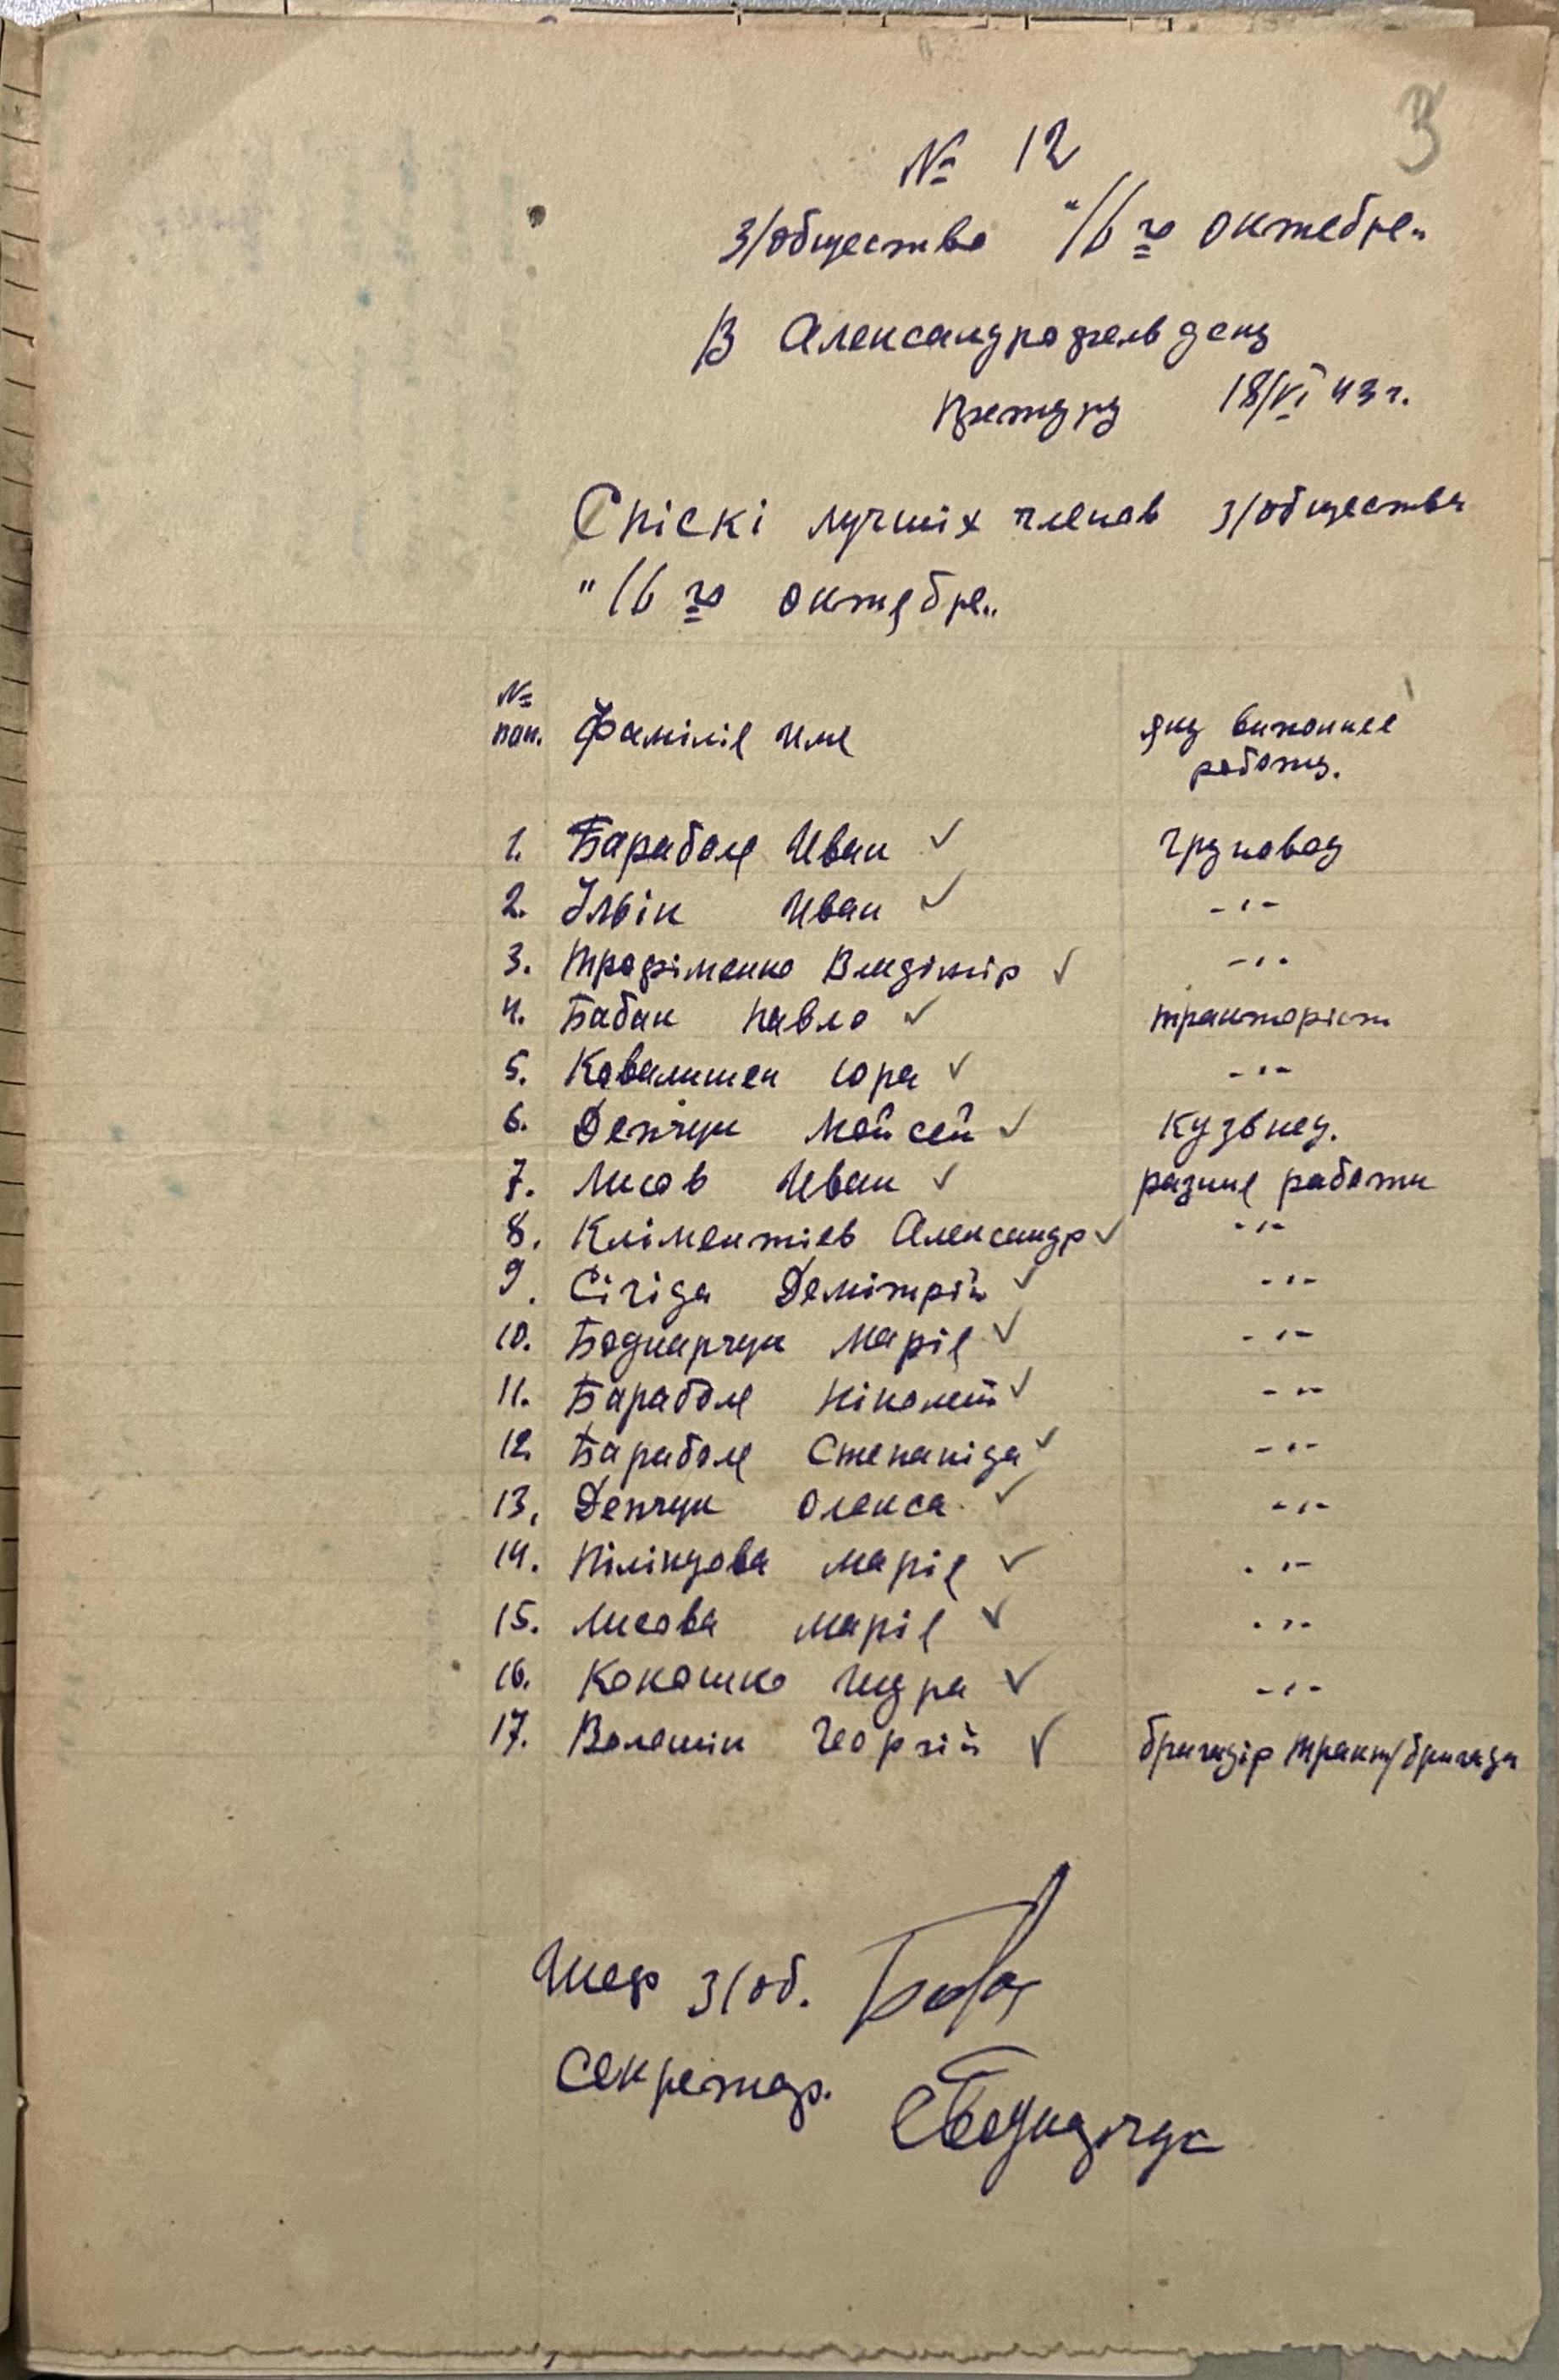 3
№ 12
З/общество "16 го октебре"
В Александрофельдску
Претуру 18/VI 43 г.
Спіскі лучшіх членов з/общества
"16 го октебре"
№ поп. Фаміліе Име Яку виконнее
работу.
1. Бараболе Иван ✓ груповод
2. Ільін Иван ✓ -"-
3. Трофіменко Владімір ✓ -"-
4. Бабак Павло ✓ тракторіст
5. Ковалишен Юра ✓ -"-
6. Демчук Мойсей ✓ Кузьнец.
7. Лисов Иван ✓ разние работи
8. Кліментіев Александр ✓ -"-
9. Сігіда Демітрій ✓ -"-
10. Боднарчук Маріе ✓ -"-
11. Бараболе Ніколай ✓ -"-
12. Бараболе Степаніда ✓ -"-
13. Демчук Олекса ✓ -"-
14. Піліпцова Маріе ✓ -"-
15. Лисова Маріе ✓ -"-
16. Кокошко Шура ✓ -"-
17. Волошін Георгій ✓ бригадір тракт/бригади
Шеф з/об.
Секретар. Боднарчук